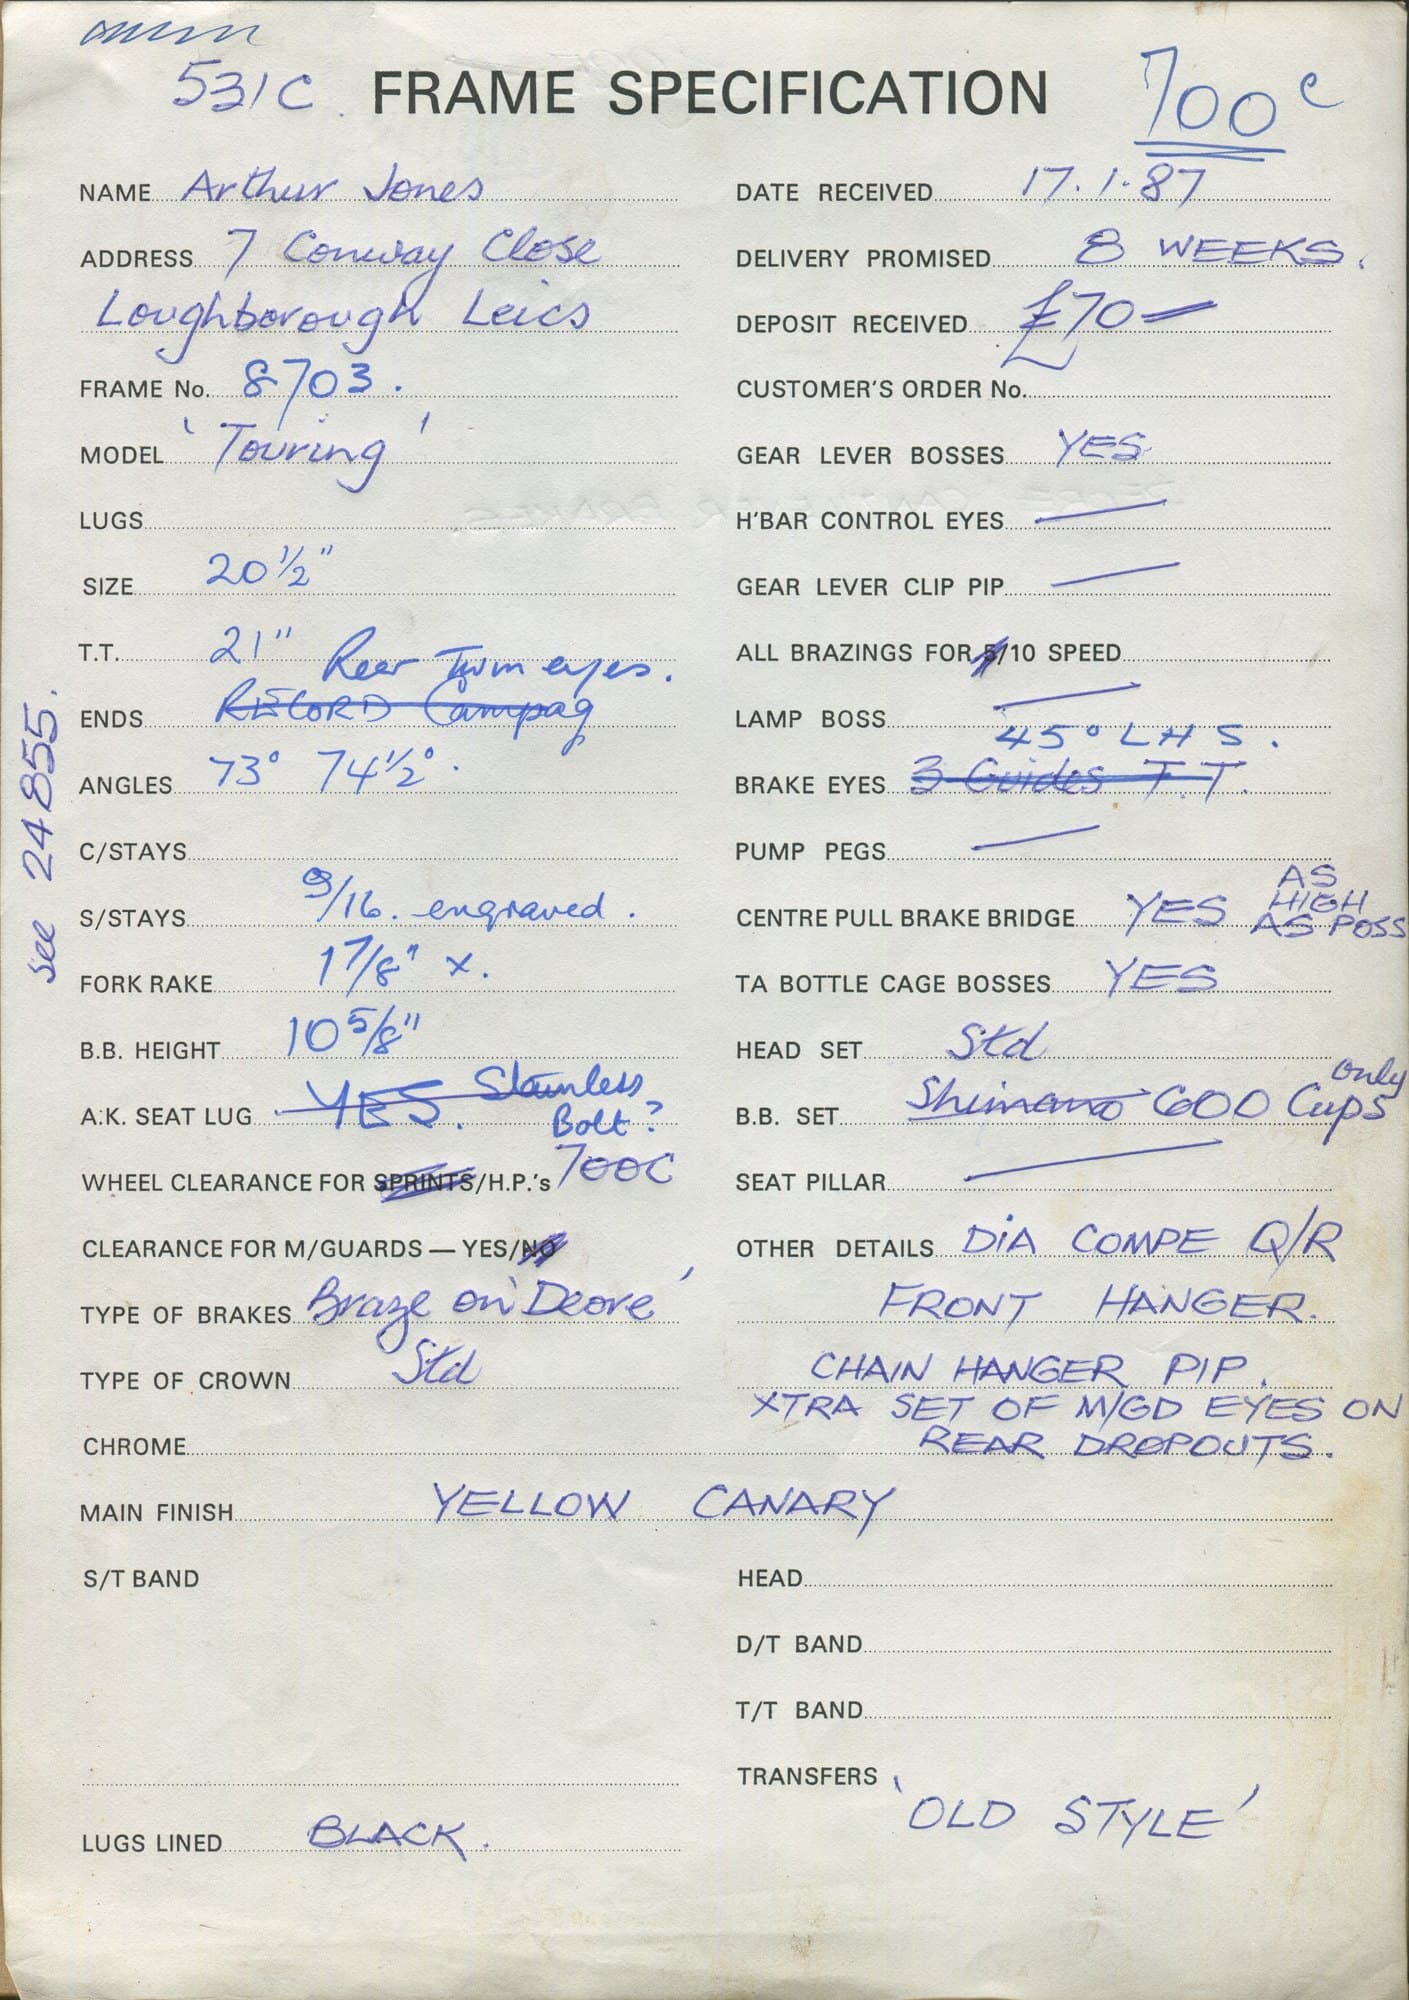 531C FRAME SPECIFICATION 700c
NAME Arthur Jones
ADDRESS 7 Conway Close
Loughborough Leics
FRAME No. 8703.
MODEL 'Touring'
LUGS
SIZE 20½"
T.T. 21"
Rear Twin eyes.
ENDS RECORD Campag
ANGLES 73° 74½°.
C/STAYS
S/STAYS 9/16. engraved.
FORK RAKE 1 7/8" x.
B.B. HEIGHT 10 5/8"
A.K. SEAT LUG YES. Stainless
Bolt?
WHEEL CLEARANCE FOR SPRINTS/H.P.'s 700C
CLEARANCE FOR M/GUARDS — YES/NO
TYPE OF BRAKES Braze on 'Deore'
TYPE OF CROWN Std
CHROME
see 24855.
DATE RECEIVED 17.1.87
DELIVERY PROMISED 8 WEEKS.
DEPOSIT RECEIVED £70—
CUSTOMER'S ORDER No.
GEAR LEVER BOSSES YES
H'BAR CONTROL EYES —
GEAR LEVER CLIP PIP —
ALL BRAZINGS FOR 5/10 SPEED
LAMP BOSS —
45° LHS.
BRAKE EYES 3 Guides T.T.
PUMP PEGS —
CENTRE PULL BRAKE BRIDGE YES AS
HIGH
AS POSS
TA BOTTLE CAGE BOSSES YES
HEAD SET Std
B.B. SET Shimano 600 Cups only
SEAT PILLAR —
OTHER DETAILS DIA COMPE Q/R
FRONT HANGER.
CHAIN HANGER PIP.
XTRA SET OF M/GD EYES ON
REAR DROPOUTS.
MAIN FINISH YELLOW CANARY
S/T BAND
LUGS LINED BLACK.
HEAD
D/T BAND
T/T BAND
TRANSFERS 'OLD STYLE'